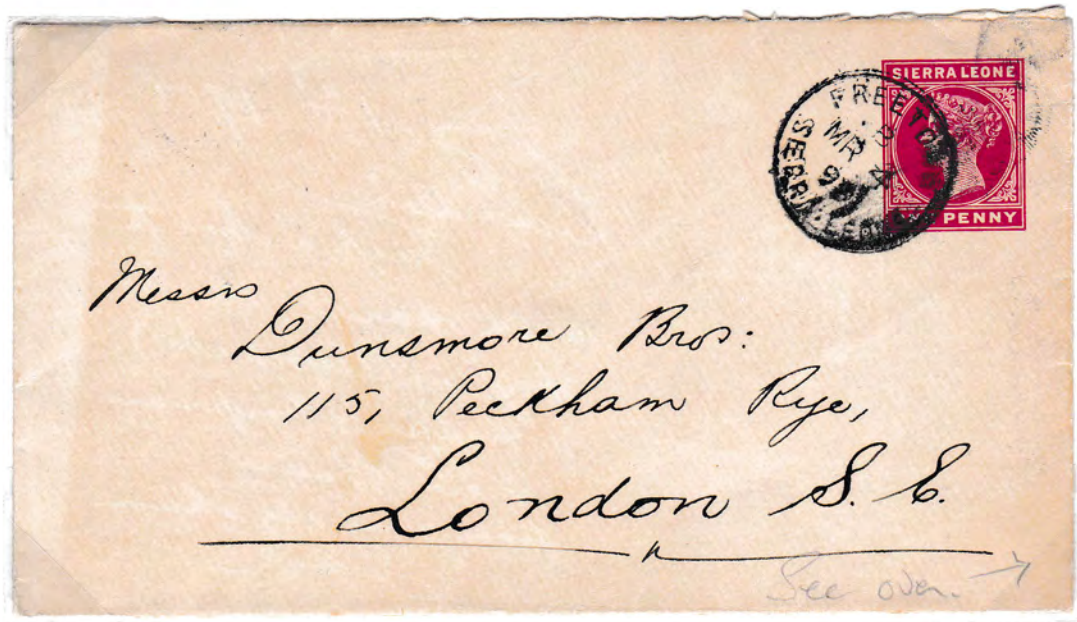 SIERRA LEONE
FREETOWN
MR
SIERRA LEONE
PENNY
Messrs
Dunsmore Bros:
115, Peckham Rye,
London S. E.
See over. →